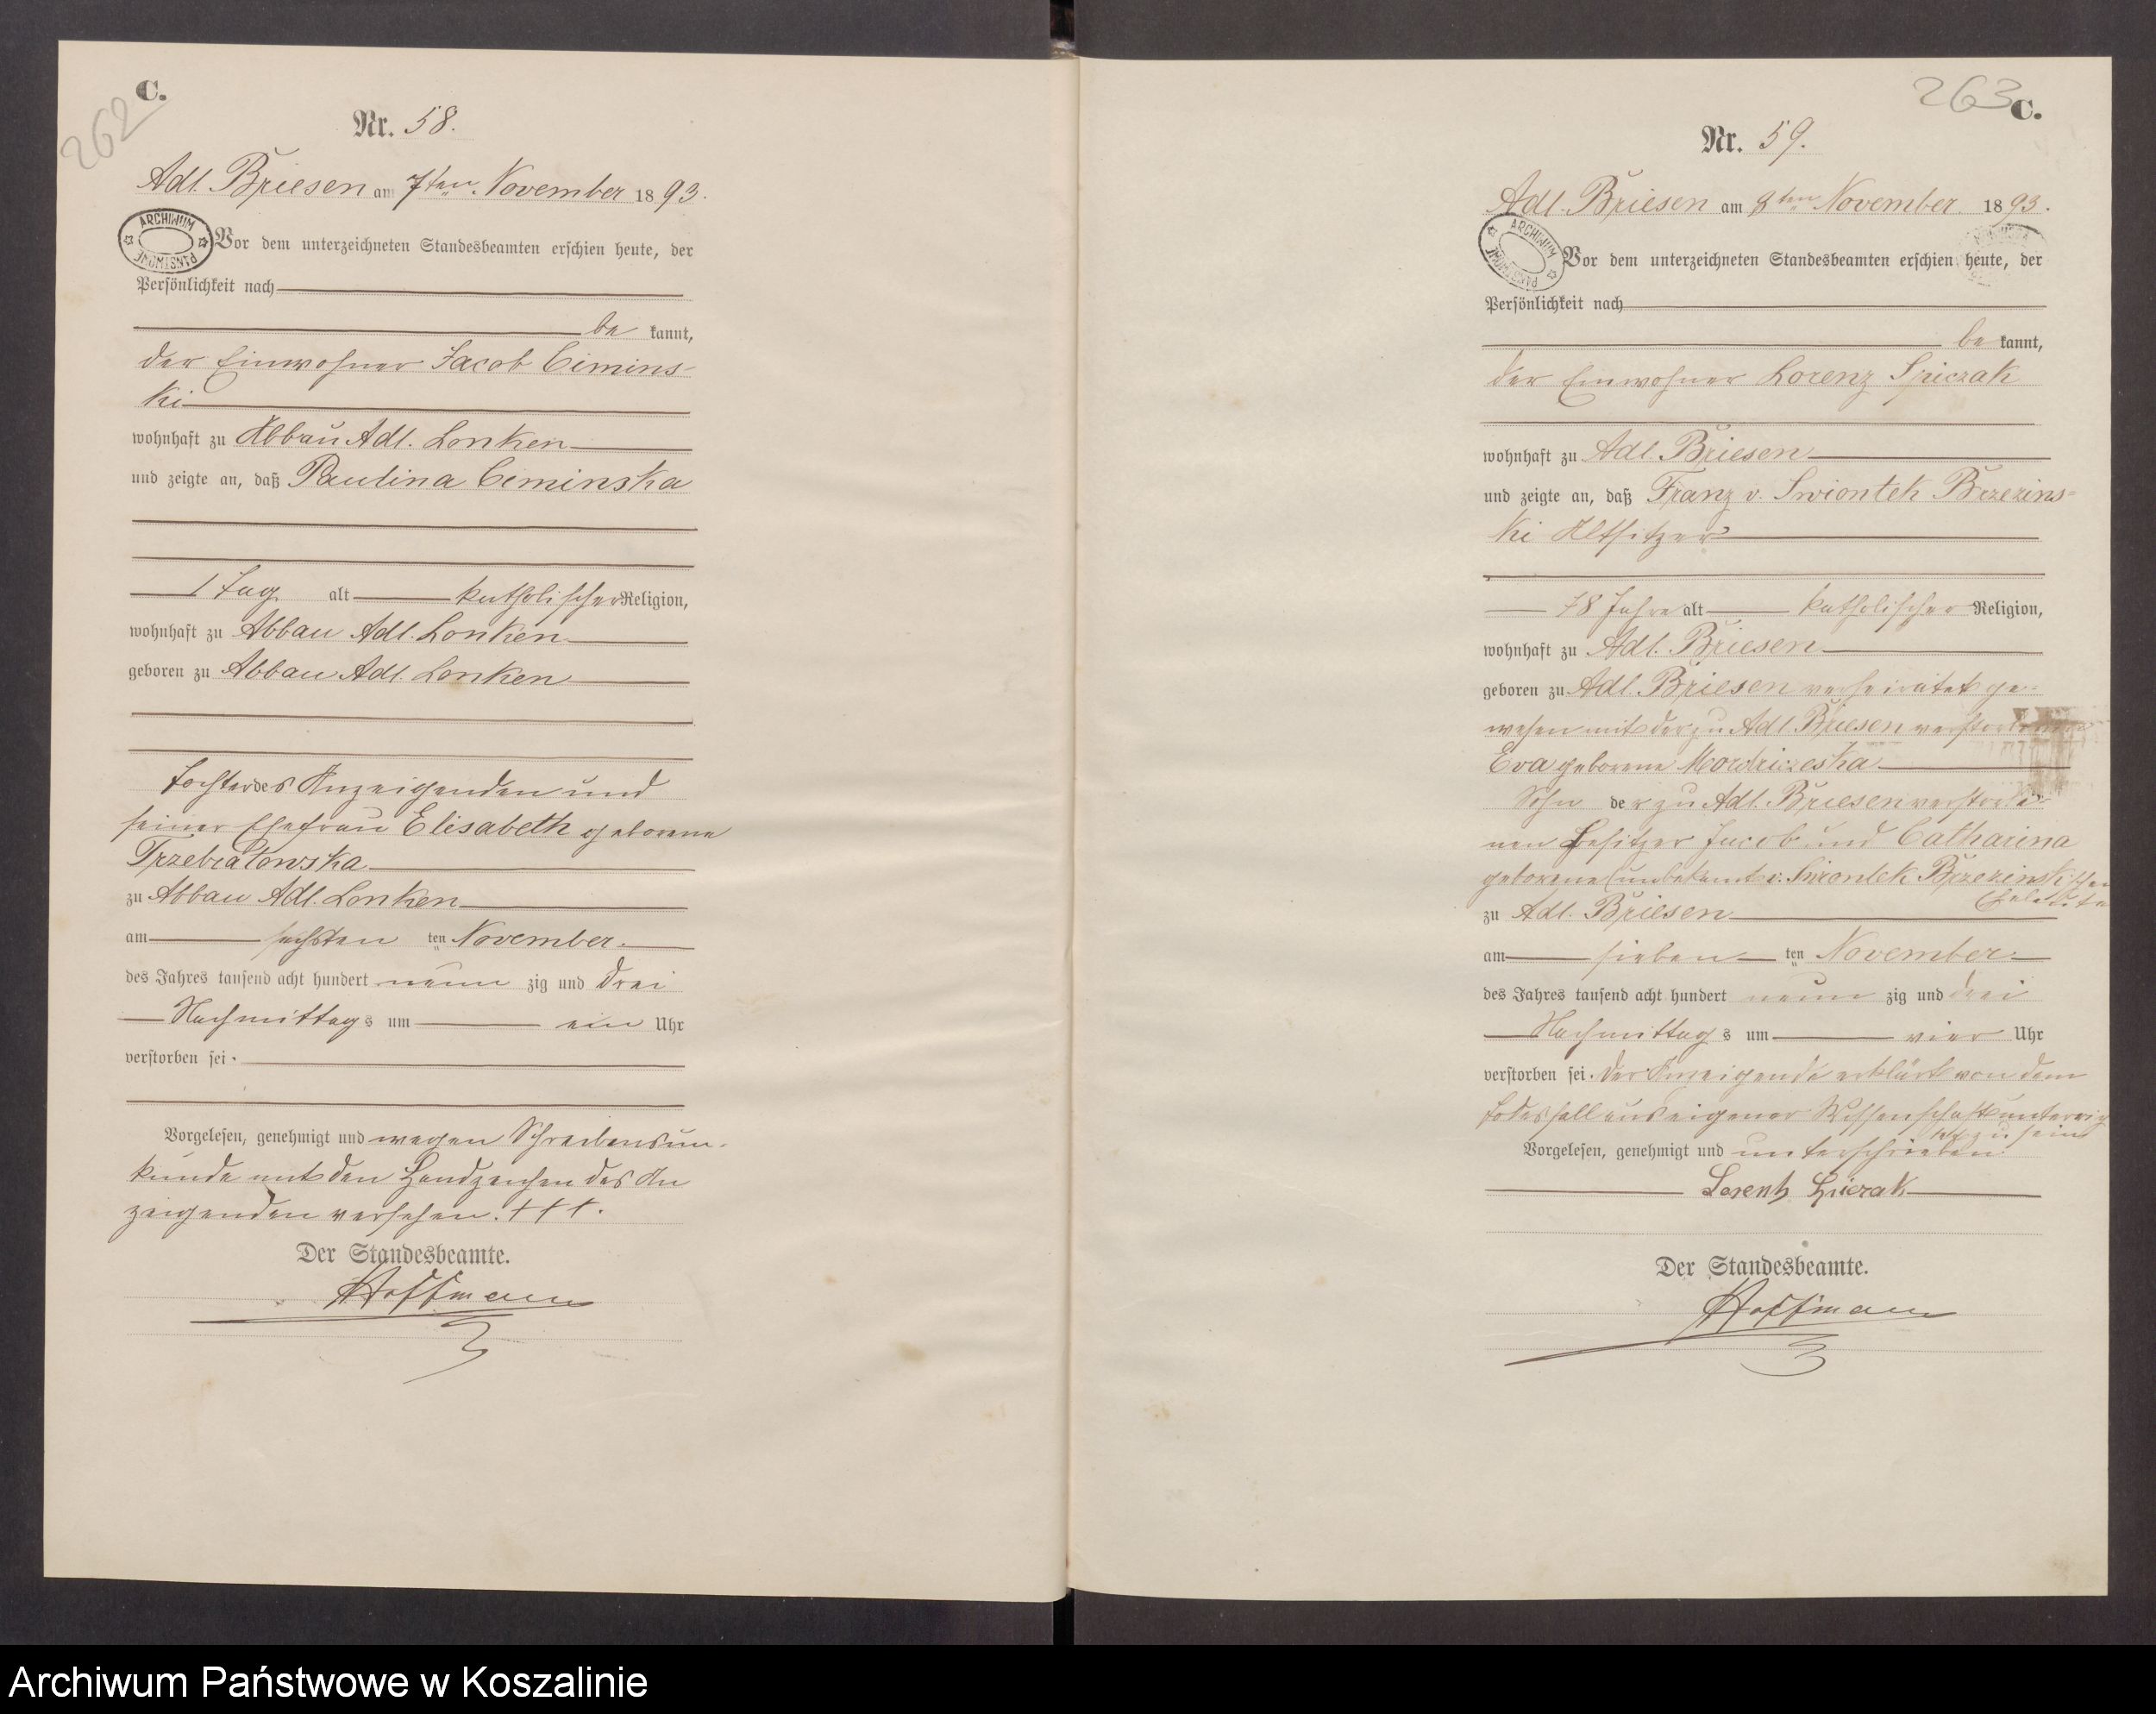 C.
262
Nr. 58.
Adl. Briesen am 7ten November 1893.
ARCHIWUM PAŃSTWOWE
Vor dem unterzeichneten Standesbeamten erschien heute, der
Persönlichkeit nach
be kannt,
der Einwohner Jacob Cimins-
ki
wohnhaft zu Abbau Adl. Lonken
und zeigte an, daß Paulina Ciminska
1 Tag alt katholischer Religion,
wohnhaft zu Abbau Adl. Lonken
geboren zu Abbau Adl. Lonken
Tochter des Anzeigenden und
seiner Ehefrau Elisabeth geborene
Trzebiatowska
zu Abbau Adl. Lonken
am sechsten ten November
des Jahres tausend acht hundert neun zig und drei
Nachmittags um ein Uhr
verstorben sei.
Vorgelesen, genehmigt und wegen Schreibensun-
kunde mit den Handzeichen des An
zeigenden versehen. +++.
Der Standesbeamte.
Hoffmann
263
C.
Nr. 59.
Adl. Briesen am 8ten November 1893.
ARCHIWUM PAŃSTWOWE
Vor dem unterzeichneten Standesbeamten erschien heute, der
Persönlichkeit nach
be kannt,
der Einwohner Lorenz Spiczak
wohnhaft zu Adl. Briesen
und zeigte an, daß Franz v. Swiontek Brzezins-
ki Altsitzer
78 Jahre alt katholischer Religion,
wohnhaft zu Adl. Briesen
geboren zu Adl. Briesen verheiratet ge-
wesen mit der zu Adl. Briesen verstorbenen
Eva geborene
Sohn der zu Adl. Briesen verstorbe-
nen Besitzer Jacob und Catharina
geborene (unbekannt v. Swiontek Brzezinskischen
Eheleute
zu Adl. Briesen
am sieben ten November
des Jahres tausend acht hundert neun zig und drei
Nachmittags um vier Uhr
verstorben sei. Der Anzeigende erklärt von dem
Todesfall aus eigener Wissenschaft unterrich
tet zu sein
Vorgelesen, genehmigt und unterschrieben
Lorentz Spiczak
Der Standesbeamte.
Hoffmann
Archiwum Państwowe w Koszalinie